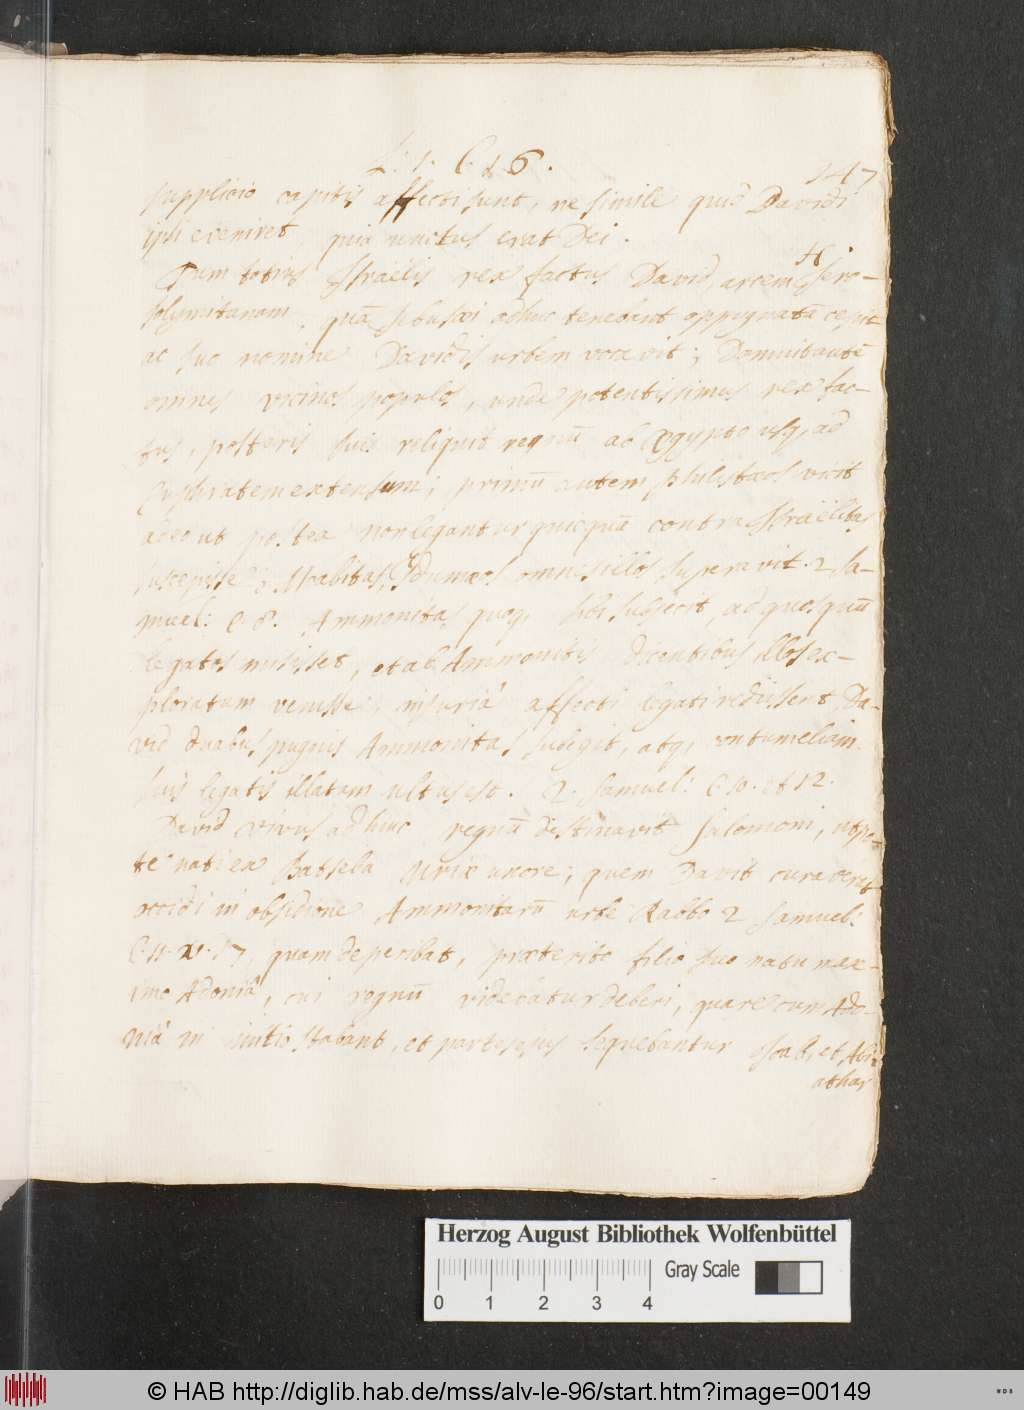 L. 1. C. 6.
147
supplicio capitis affecti sunt, ne simile quid Davidi
ipsi eveniret, quia unctus erat Dei.
Dum totius Israëlis rex factus David, arcem Hiero-
solymitanam, quã Jebusæi adhuc tenebant oppugnatã cepit
ac suo nomine Davidis urbem vocavit; Domuit autẽ
omnes vicinos populos, unde potentissimus rex fac-
tus, posteris suis reliquit regnũ ab Ægypto usq, ad
Euphratem extensum; primũ autem Philistæos vicit
adeo ut postea non legantur quicquã contra Israëlitas
suscepisse; Moabitas, Idumæos omnes illos superavit. 2 Sa-
muel: C. 8. Ammonitas quoq, sibi subjecit, ad quos quũ
legatos misisset, et ab Ammonitis dicentibus illos ex-
ploratum venisse, injuriâ affecti legati rediissent, Da-
vid duabus pugnis Ammonitas subegit, atq, contumeliam
suis legatis illatam ultus est. 2. Samuel: C. 10. et 12.
David vivus adhuc regnũ destinavit Salomoni, utpo-
te nati ex Batseba Uriæ uxore; quem Davit curaverit
occidi in obsidione Ammonitarũ urbe Rabbo 2 Samuel:
C. 11. v. 17, quam deperibat, præterito filio suo natu max-
imo Adoniâ, cui regnũ videbatur deberi, quare cum Ado-
niâ in initio stabant, et partes ejus sequebantur Joab, et Abi-
athar
Herzog August Bibliothek Wolfenbüttel
Gray Scale
0 1 2 3 4
© HAB http://diglib.hab.de/mss/alv-le-96/start.htm?image=00149